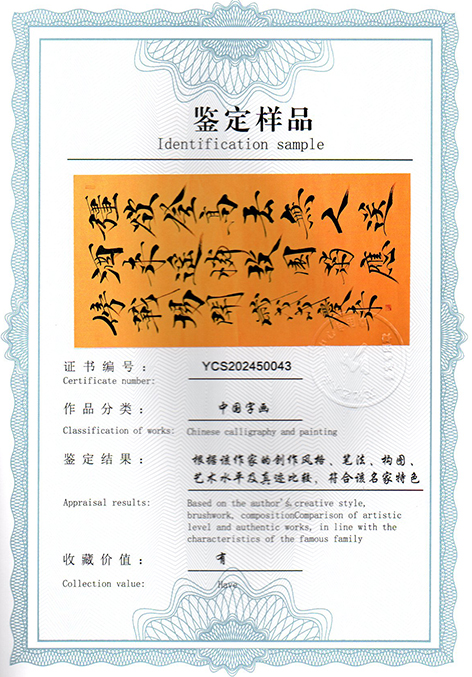 鉴定样品
Identification sample
强欲登高去無人送
酒来遥憐故園菊應
傍戰場開
证书编号： YCS202450043
Certificate number:
作品分类： 中国字画
Classification of works: Chinese calligraphy and painting
鉴定结果： 根据该作家的创作风格、笔法、构图、
艺术水平及真迹比较，符合该名家特色
Appraisal results: Based on the author's creative style,
brushwork, compositionComparison of artistic
level and authentic works, in line with the
characteristics of the famous family
收藏价值： 有
Collection value: Have